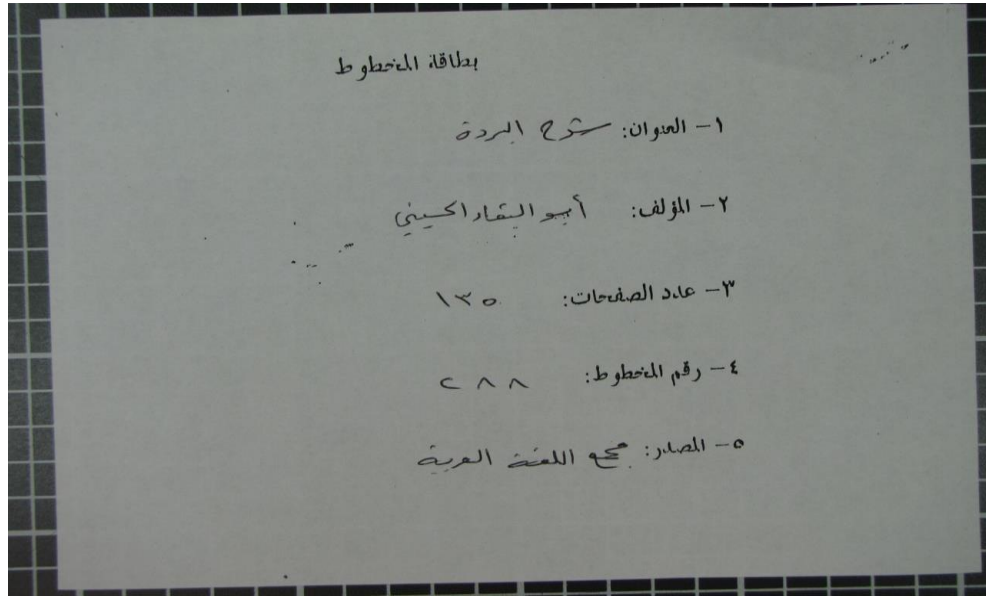 بطاقة المخطوط
١- العنوان: شرح البردة
٢- المؤلف: أبو البقاء الحسيني
٣- عدد الصفحات: ١٣٥
٤- رقم المخطوط: ٢٨٨
٥- المصدر: مجمع اللغة العربية